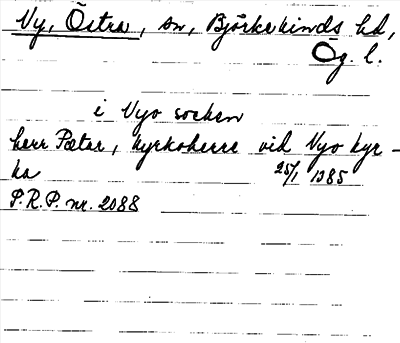 Vy, Östra, sn, Björkekinds hd,
Ög. l.
i Vyo socken
herr Pætar, kyrkoherre vid Vyo kyr-
ka 25/1 1385
P.R.P. nr. 2088